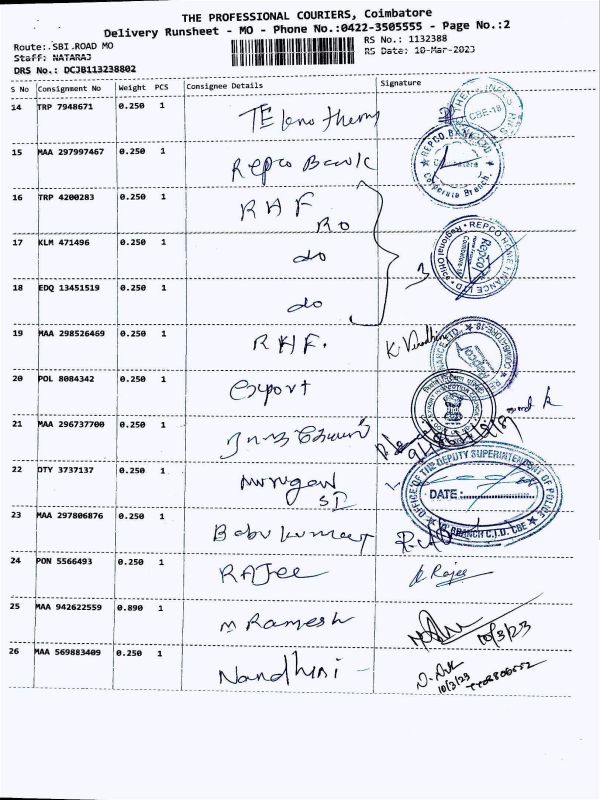 THE PROFESSIONAL COURIERS, Coimbatore
Delivery Runsheet - MO - Phone No.:0422-3505555 - Page No.:2
Route:.SBI.ROAD MO
RS No.: 1132388
Staff: NATARAJ
RS Date: 10-Mar-2023
DRS No.: DCJB113238802
S No Consignment No Weight PCS Consignee Details Signature
14 TRP 7948671 0.250 1
CBE-18
15 MAA 297997467 0.250 1 Repco Bank
REPCO BANK LTD
Corporate Branch
16 TRP 4200283 0.250 1 RHF
RO
17 KLM 471496 0.250 1 do
3
REPCO HOME FINANCE LTD
Regional Office
18 EDQ 13451519 0.250 1 do
19 MAA 298526469 0.250 1 RHF.
20 POL 8084342 0.250 1 export
21 MAA 296737700 0.250 1
22 OTY 3737137 0.250 1 murugan
SI
OFFICE OF THE DEPUTY SUPERINTENDENT OF POLICE
DATE:
BRANCH C.I.D. CBE
23 MAA 297806876 0.250 1 Babu kumar
24 PON 5566493 0.250 1 RAJee
Rajee
25 MAA 942622559 0.890 1 m Ramesh
10/3/23
26 MAA 569883409 0.250 1 Nandhini
10/3/23